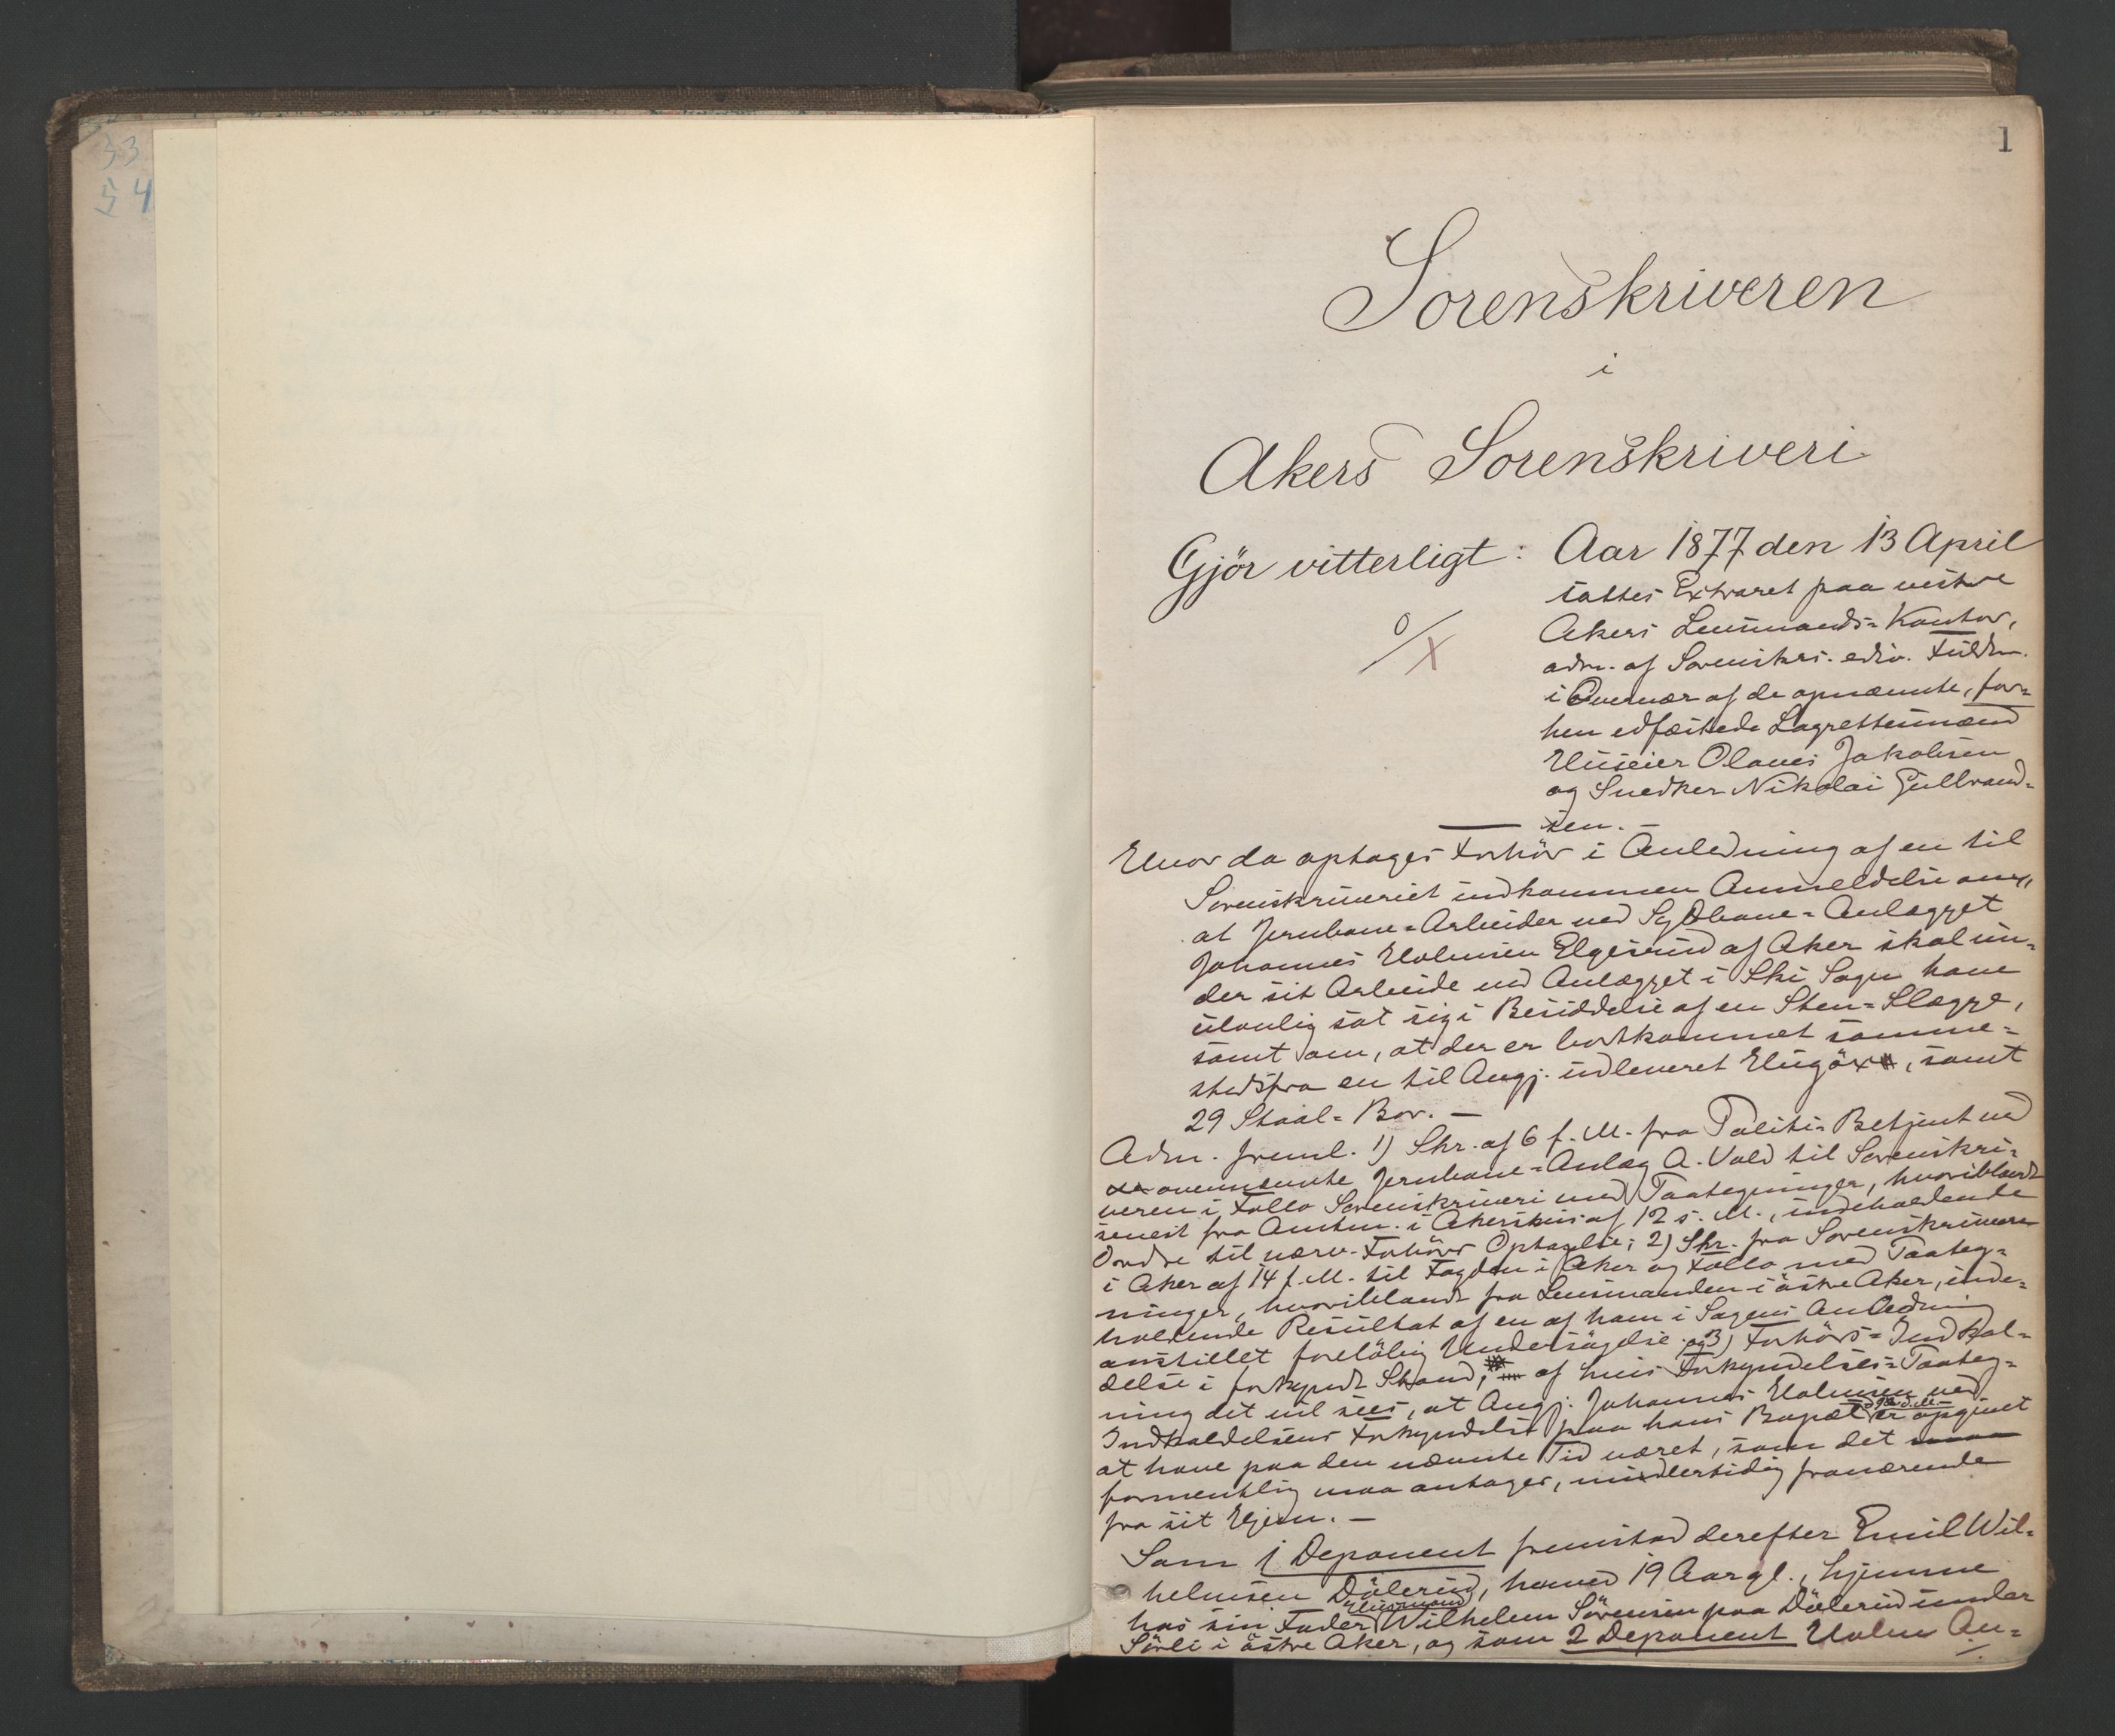 33
54
1
Sorenskriveren
i
Akers Sorenskriveri
Gjör vitterligt: Aar 1877 den 13 April
sattes Extraret paa vestre
Akers Lensmands-Kontor,
adm. af Sorenskrs. edsv. Fuldm.
i Overvær af de opnævnte, for-
hen edfæstede Lagrettesmænd
Huseier Olaves Jakobsen
og Snedker Nikolai Gulbrand-
sen. —
Hvor da optages Forhör i Anledning af en til
Sorenskriveriet indkommen Anmeldelse om,
at Jernbane-Arbeider ved Sydbane-Anlægget
Johannes Holmsen Elgsrud af Aker skal un-
der sit Arbeide ved Anlægget i Ski Sogn have
ulovlig sat sig i Besiddelse af en Sten-Slægge,
samt om, at der er bortkommet samme-
stedsfra en til Angj. udleveret Hugöx, samt
29 Staal-Bor. —
Adm. freml. 1) Skr. af 6 f. M. fra Politi-Betjent ved
ovennævnte Jernbane-Anlæg A. Vold til Sorenskri-
veren i Follo Sorenskriveri med Paategninger, hvoriblandt
senest fra Amtm. i Akershus af 12 s. M., indeholdende
Ordre til nærv. Forhörs Optagelse; 2) Skr. fra Sorenskriveren
i Aker af 14 f. M. til Fogden i Aker og Follo med Paateg-
ninger, hvoriblandt fra Lensmanden i östre Aker, inde-
holdende Resultat af en af ham i Sagens Anledning
anstillet forelöbig Undersögelse og 3) Forhörs-Indkal-
delse i forkyndt Stand, af hvis Forkyndelses-Paateg-
ning det vil sees, at Angj. Johannes Holmsen ved
Indkaldelsens Forkyndelse paa hans Bopæl er opgivet
at have paa den nævnte Tid været, som det
formentlig maa antages, midlertidig fraværende
fra sit Hjem. —
Som 1 Deponent fremstod derefter Emil Wil-
helmsen Dölerud, 19 Aar gl., hjemme
hos sin Fader Husmand Wilhelm Sörensen paa Dölerud under
Sörli i östre Aker, og som 2 Deponent Holm An-